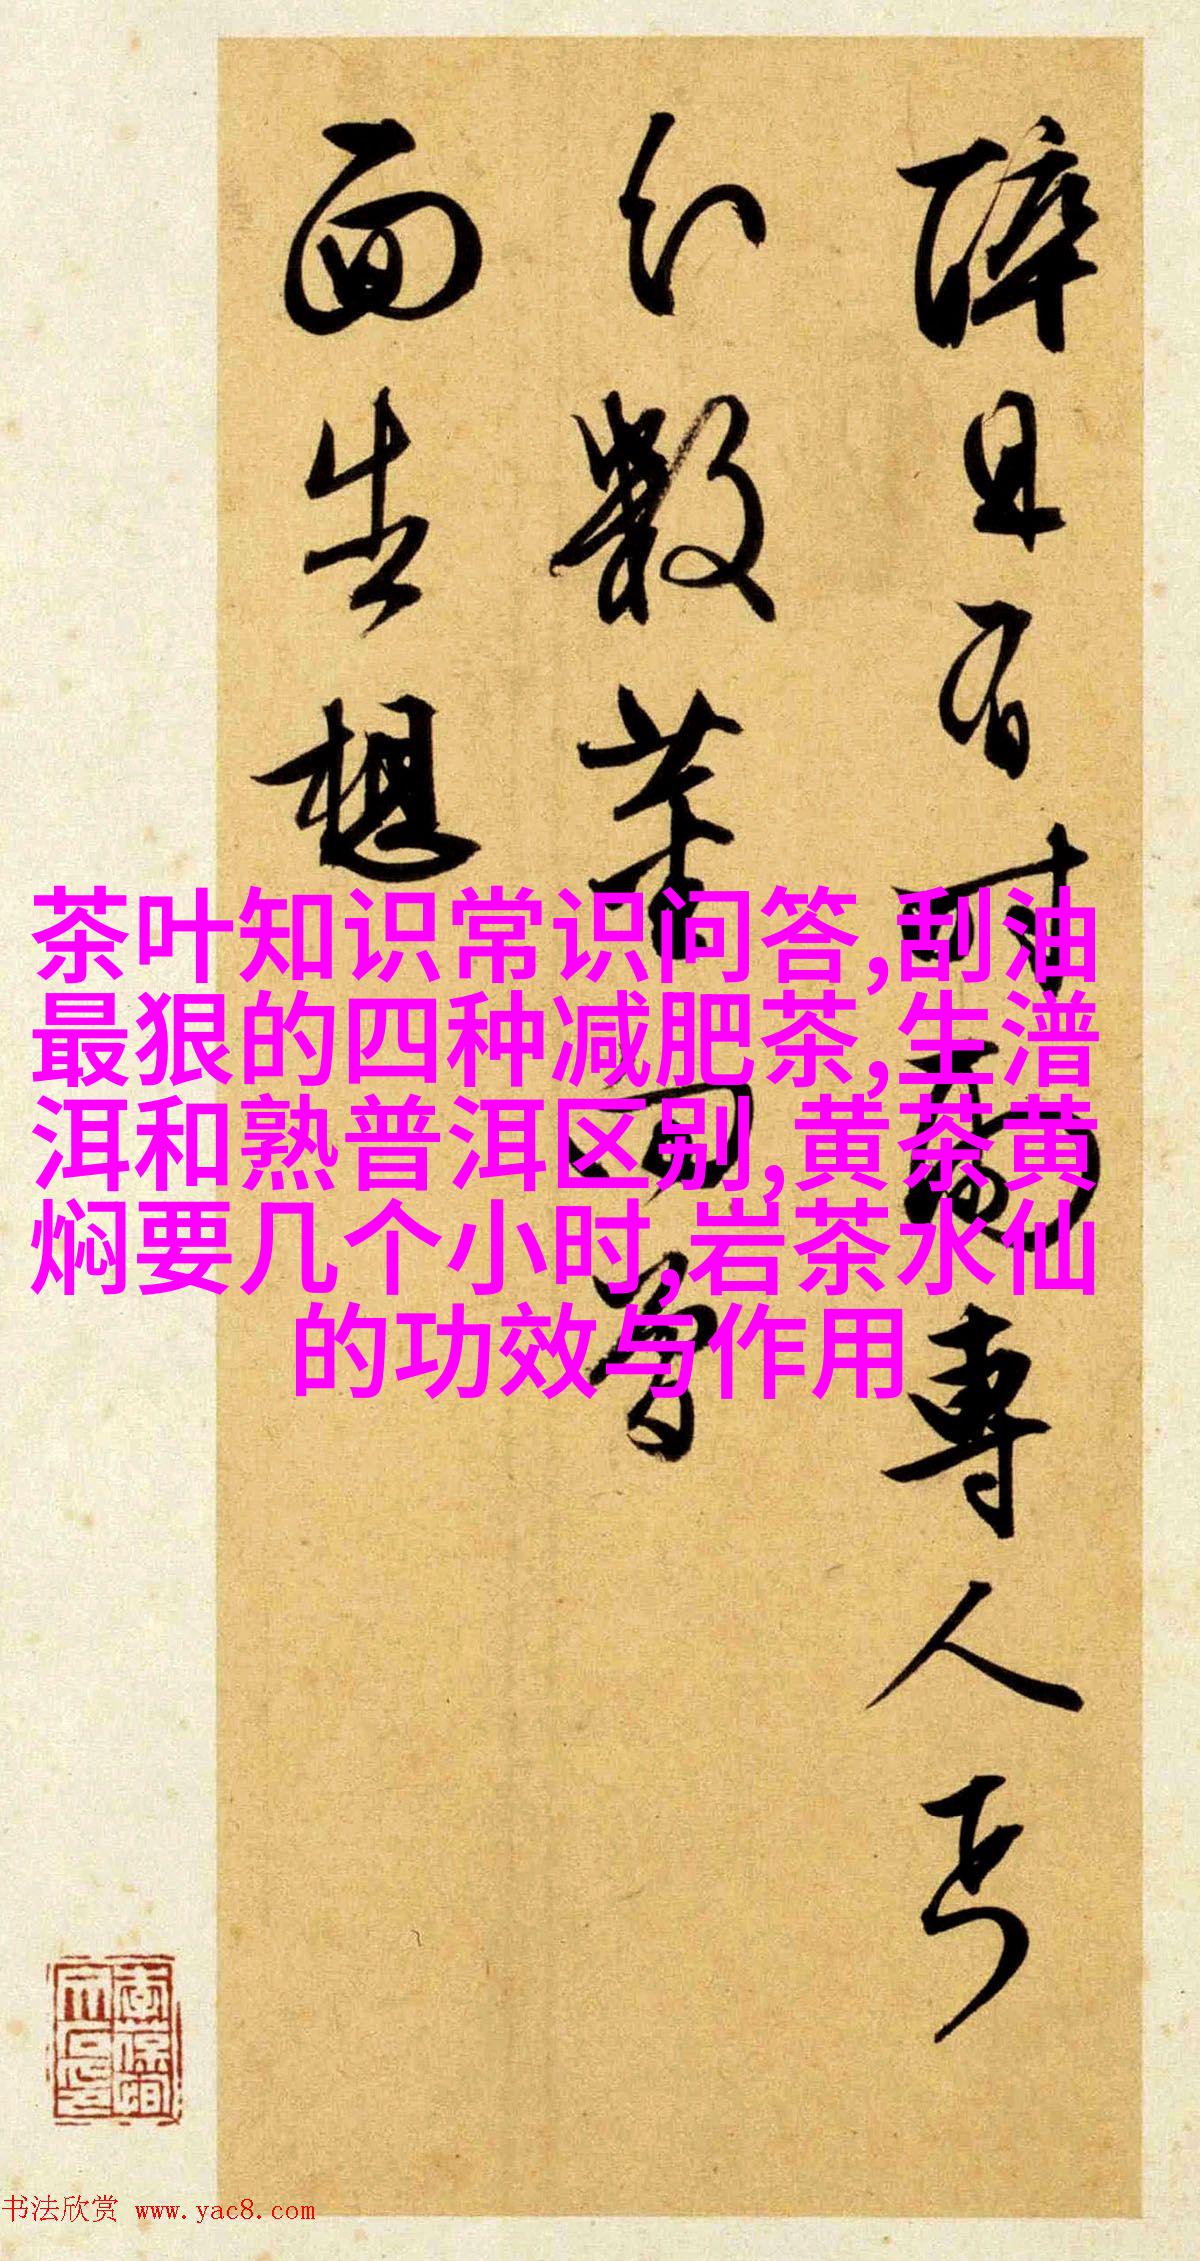 面生想
幻數
且有時蘭專人丐
茶叶知识常识问答,刮油
最狠的四种减肥茶,生潽
洱和熟普洱区别,黄茶黄
焖要几个小时,岩茶水仙
的功效与作用
书法欣赏 www.yac8.com